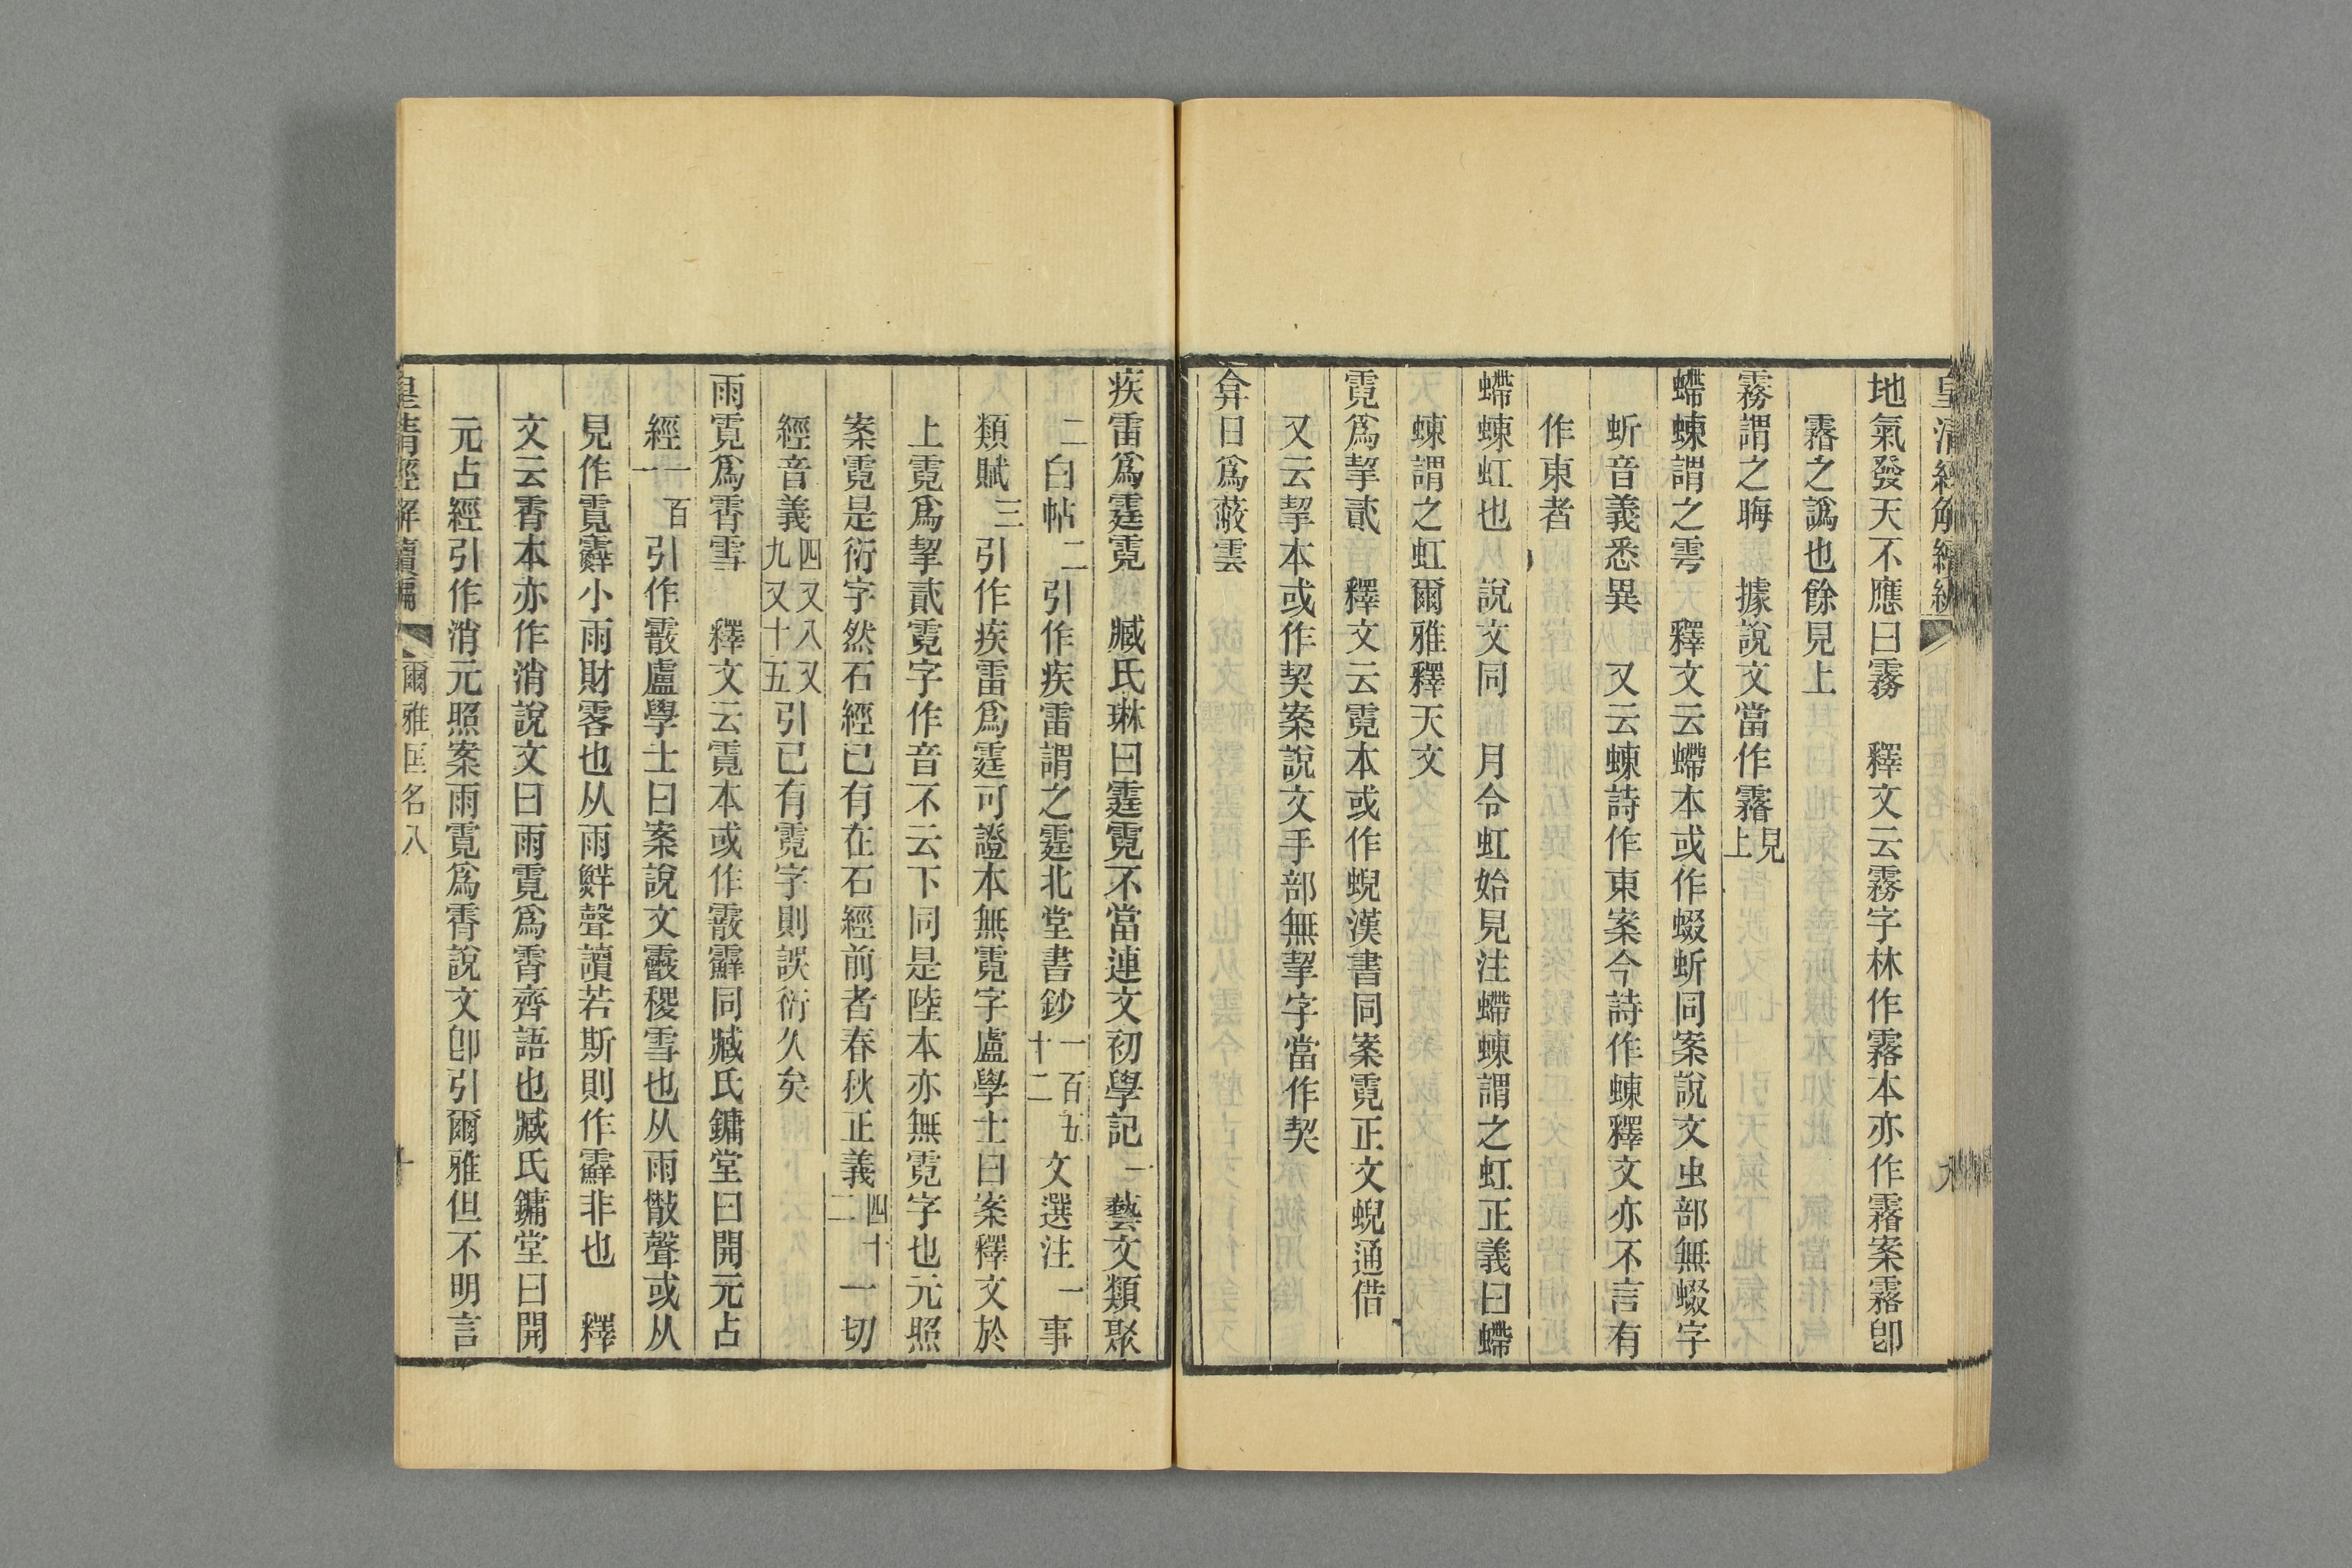 皇清經解續編 爾雅匡名八 九
地氣發天不應曰霧　釋文云霧字林作霿本亦作霿案霿卽
霿之譌也餘見上
霧謂之晦　據說文當作霿見上
螮蝀謂之雩　釋文云螮本或作蝃蚚同案說文虫部無蝃字
蚚音義悉異　又云蝀詩作東案今詩作蝀釋文亦不言有
作東者
螮蝀虹也　說文同　月令虹始見注螮蝀謂之虹正義曰螮
蝀謂之虹爾雅釋天文
霓爲挈貳　釋文云霓本或作蜺漢書同案霓正文蜺通借
又云挈本或作契案說文手部無挈字當作契
弇日爲蔽雲
疾雷爲霆霓　臧氏琳曰霆霓不當連文初學記一藝文類聚
二白帖二引作疾雷謂之霆北堂書鈔一百五十二文選注一事
類賦三引作疾雷爲霆可證本無霓字盧學士曰案釋文於
上霓爲挈貳霓字作音不云下同是陸本亦無霓字也元照
案霓是衍字然石經已有在石經前者春秋正義四十二一切
經音義四又八又九又十五引已有霓字則誤衍久矣
雨霓爲霄雪　釋文云霓本或作霰霹同臧氏鏞堂曰開元占
經一百一引作霰盧學士曰案說文霰稷雪也从雨散聲或从
見作霓霹小雨財零也从雨鮮聲讀若斯則作霹非也　釋
文云霄本亦作消說文曰雨霓爲霄齊語也臧氏鏞堂曰開
元占經引作消元照案雨霓爲霄說文卽引爾雅但不明言
皇清經解續編 爾雅匡名八 十